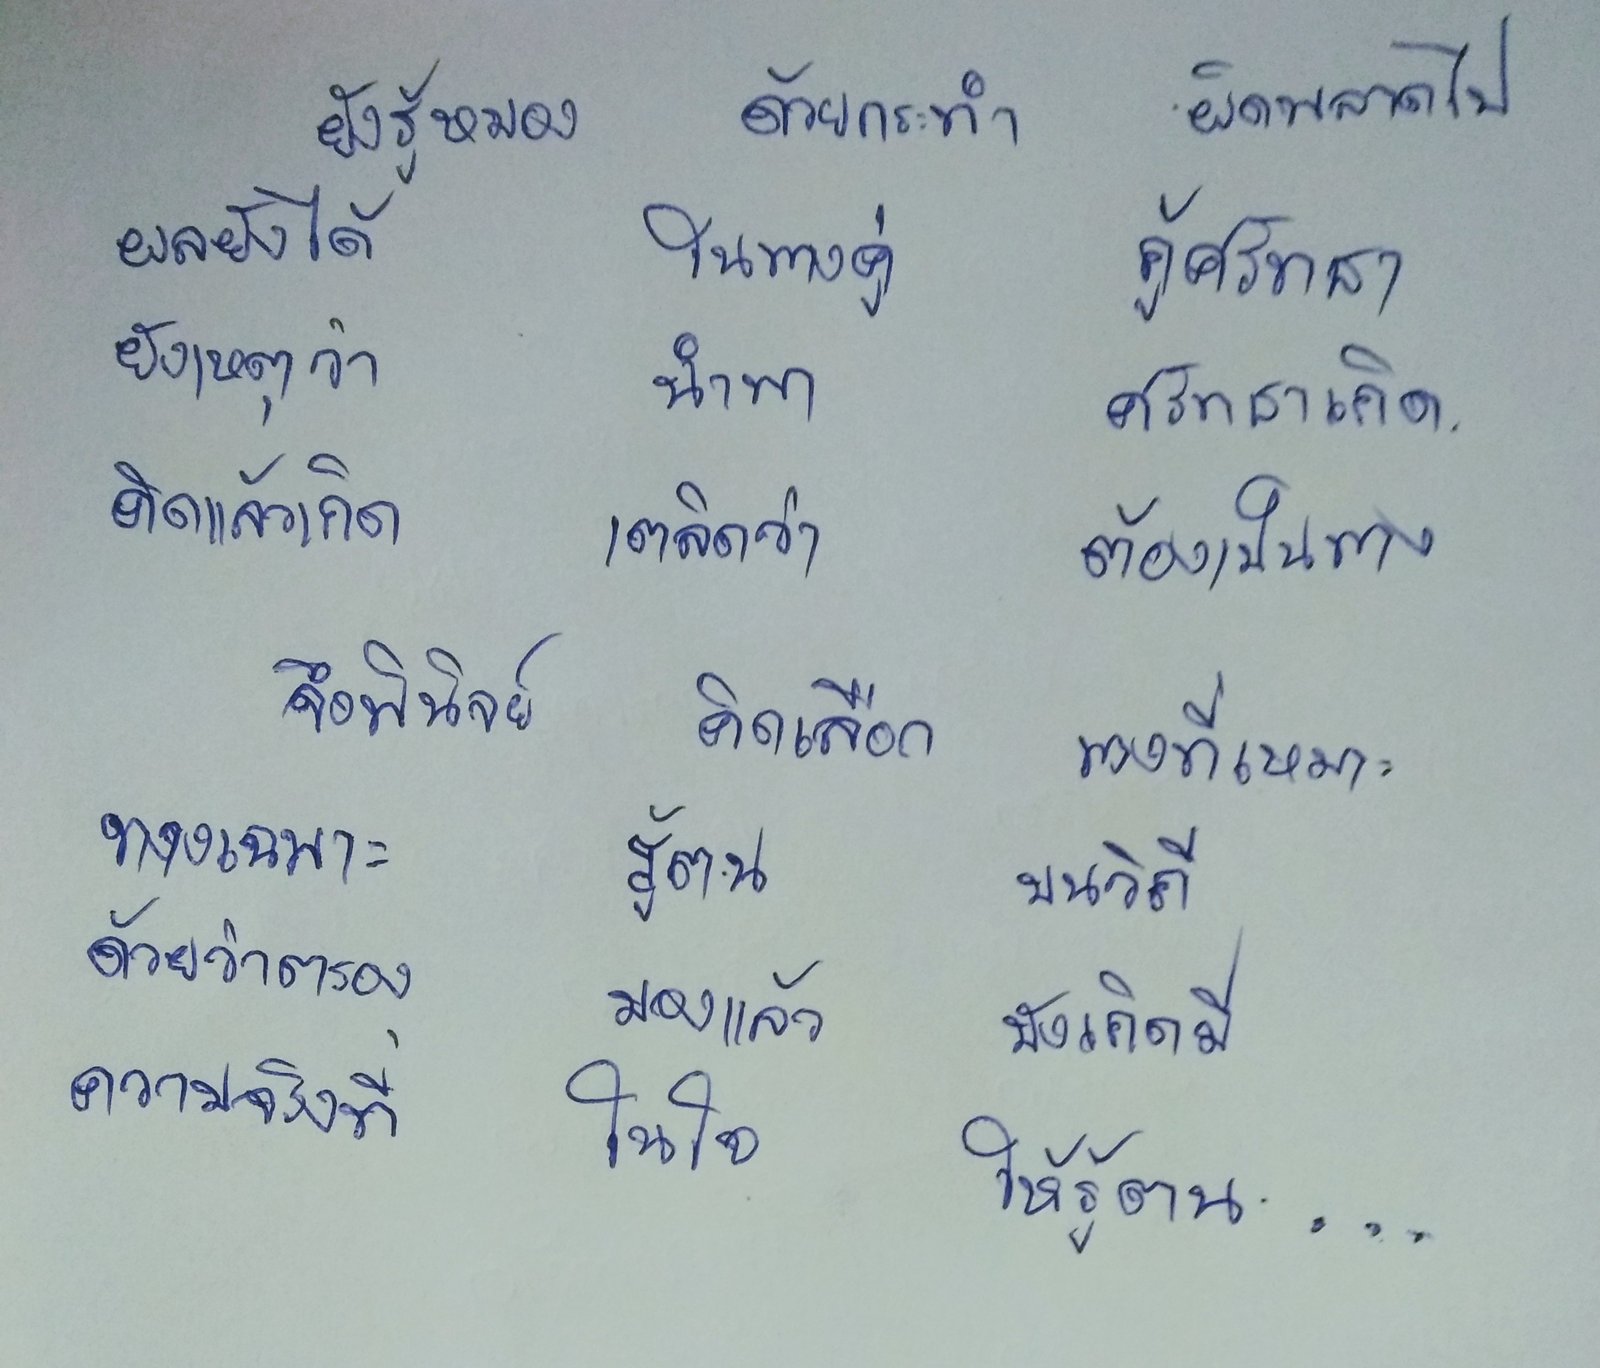 ยังรู้หมอง ด้วยกระทำ ผิดพลาดไป
ผลยังได้ ในทางคู่ คู้ศรัทธา
ยังเหตุว่า นำพา ศรัทธาเกิด.
คิดแล้วเกิด เตลิดว่า ต้องเป็นทาง
จึงพินิจย์ คิดเลือก ทางที่เหมาะ
ทางเฉพาะ รู้ตน บนวิถี
ด้วยว่าตรอง มองแล้ว ยังเกิดมี
ความจริงที่ ในใจ ให้รู้ตน....